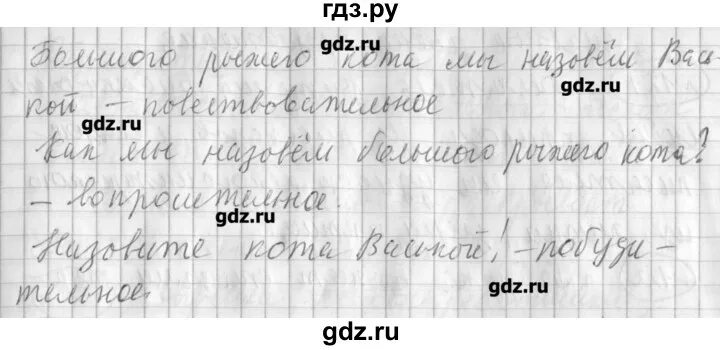 гдз.ру
Большого рыжего кота мы назовём Вась-
gdz.ru
gdz.ru
кой – повествовательное
gdz.ru
Как мы назовём большого рыжего кота?
gdz.ru
– вопросительное.
gdz.ru
Назовите кота Васькой! – побуди-
тельное.
gdz.ru
gdz.ru